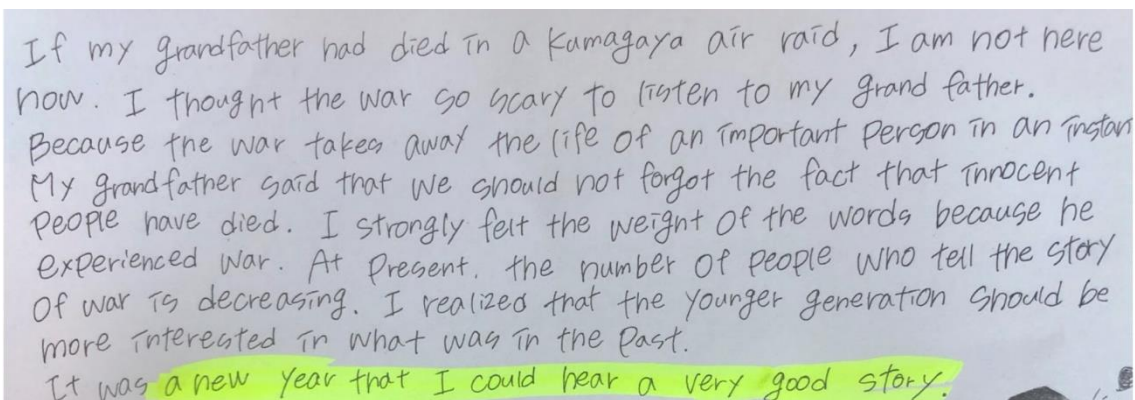 If my grandfather had died in a Kumagaya air raid, I am not here
now. I thought the war so scary to listen to my grand father.
Because the war takes away the life of an important person in an instan
My grandfather said that we should not forgot the fact that innocent
people have died. I strongly felt the weight of the words because he
experienced war. At present. the number of people who tell the story
of war is decreasing. I realized that the younger generation should be
more interested in what was in the past.
It was a new year that I could hear a very good story.